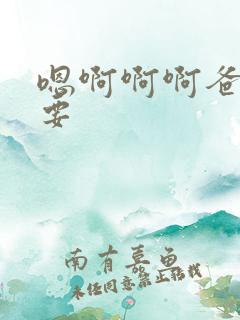 嗯啊啊啊爸
要
南有嘉鱼
未经同意禁止转载